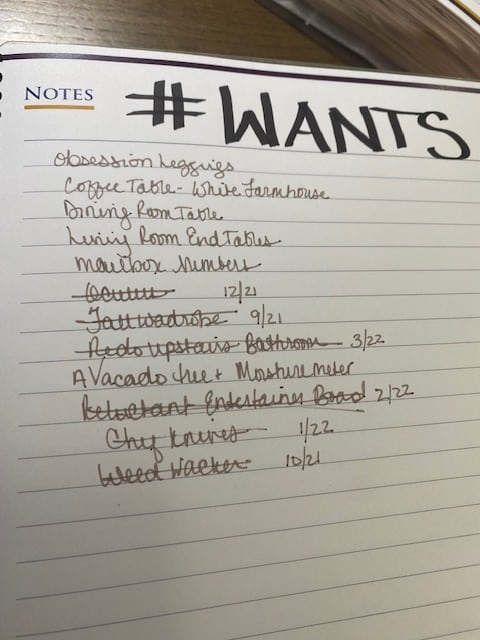 NOTES
#WANTS
Obsession Leggings
Coffee Table - White Farmhouse
Dining Room Table
Living Room End Tables
Mailbox Numbers
12/21
Fall wadrobe 9/21
Redo upstairs Bathroom 3/22
AVacado tree + Moisture meter
Reluctant Entertainer Board 2/22
Chef Knives 1/22
Weed Wacker 10/21